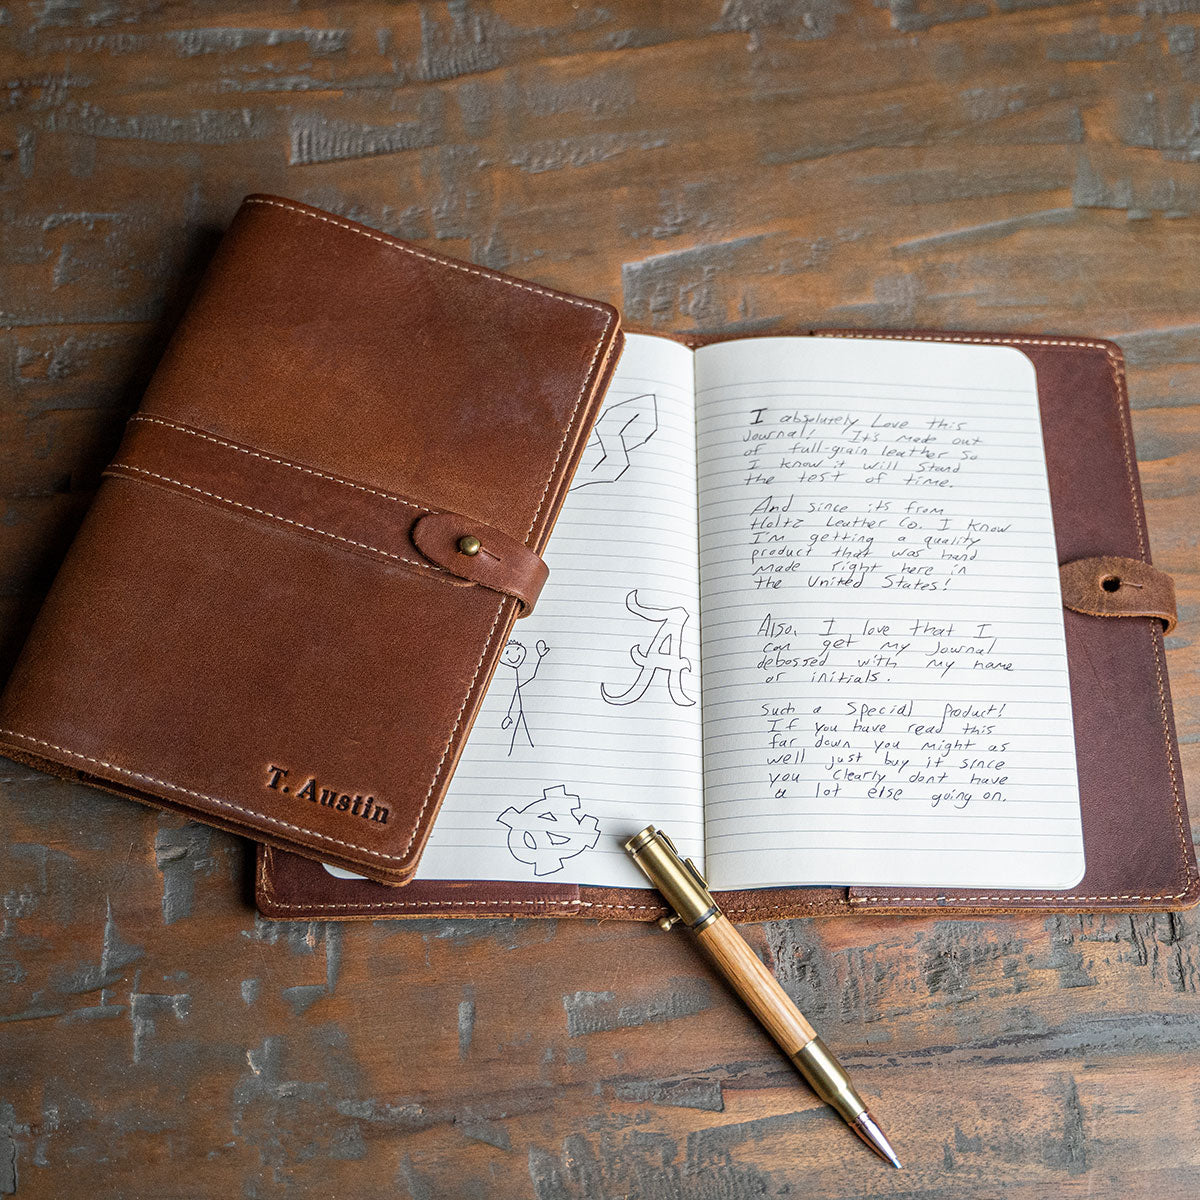 I absolutely Love this
Journal! It's made out
of full-grain leather so
I know it will stand
the test of time.
And since its from
Holtz Leather Co. I know
I'm getting a quality
product that was hand
made right here in
the United States!
Also, I love that I
can get my Journal
debossed with my name
or initials.
Such a special product!
If you have read this
far down you might as
well just buy it since
you clearly dont have
a lot else going on.
A
T. Austin